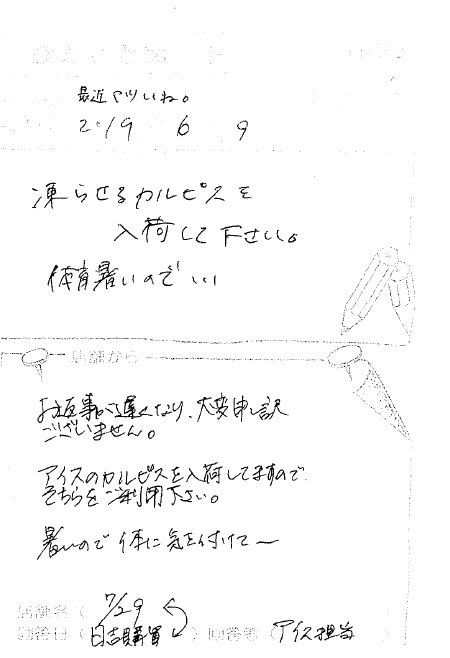 最近アツいね。
2019 6 9
凍らせるカルピスを
入荷して下さい。
体育暑いので…
店舗から
お返事が遅くなり、大変申し訳
ございません。
アイスのカルピスを入荷してますので
そちらをご利用下さい。
暑いので体に気を付けて〜
店舗名( 7/29 )
回答日(日吉購買) 回答者(アイス担当)